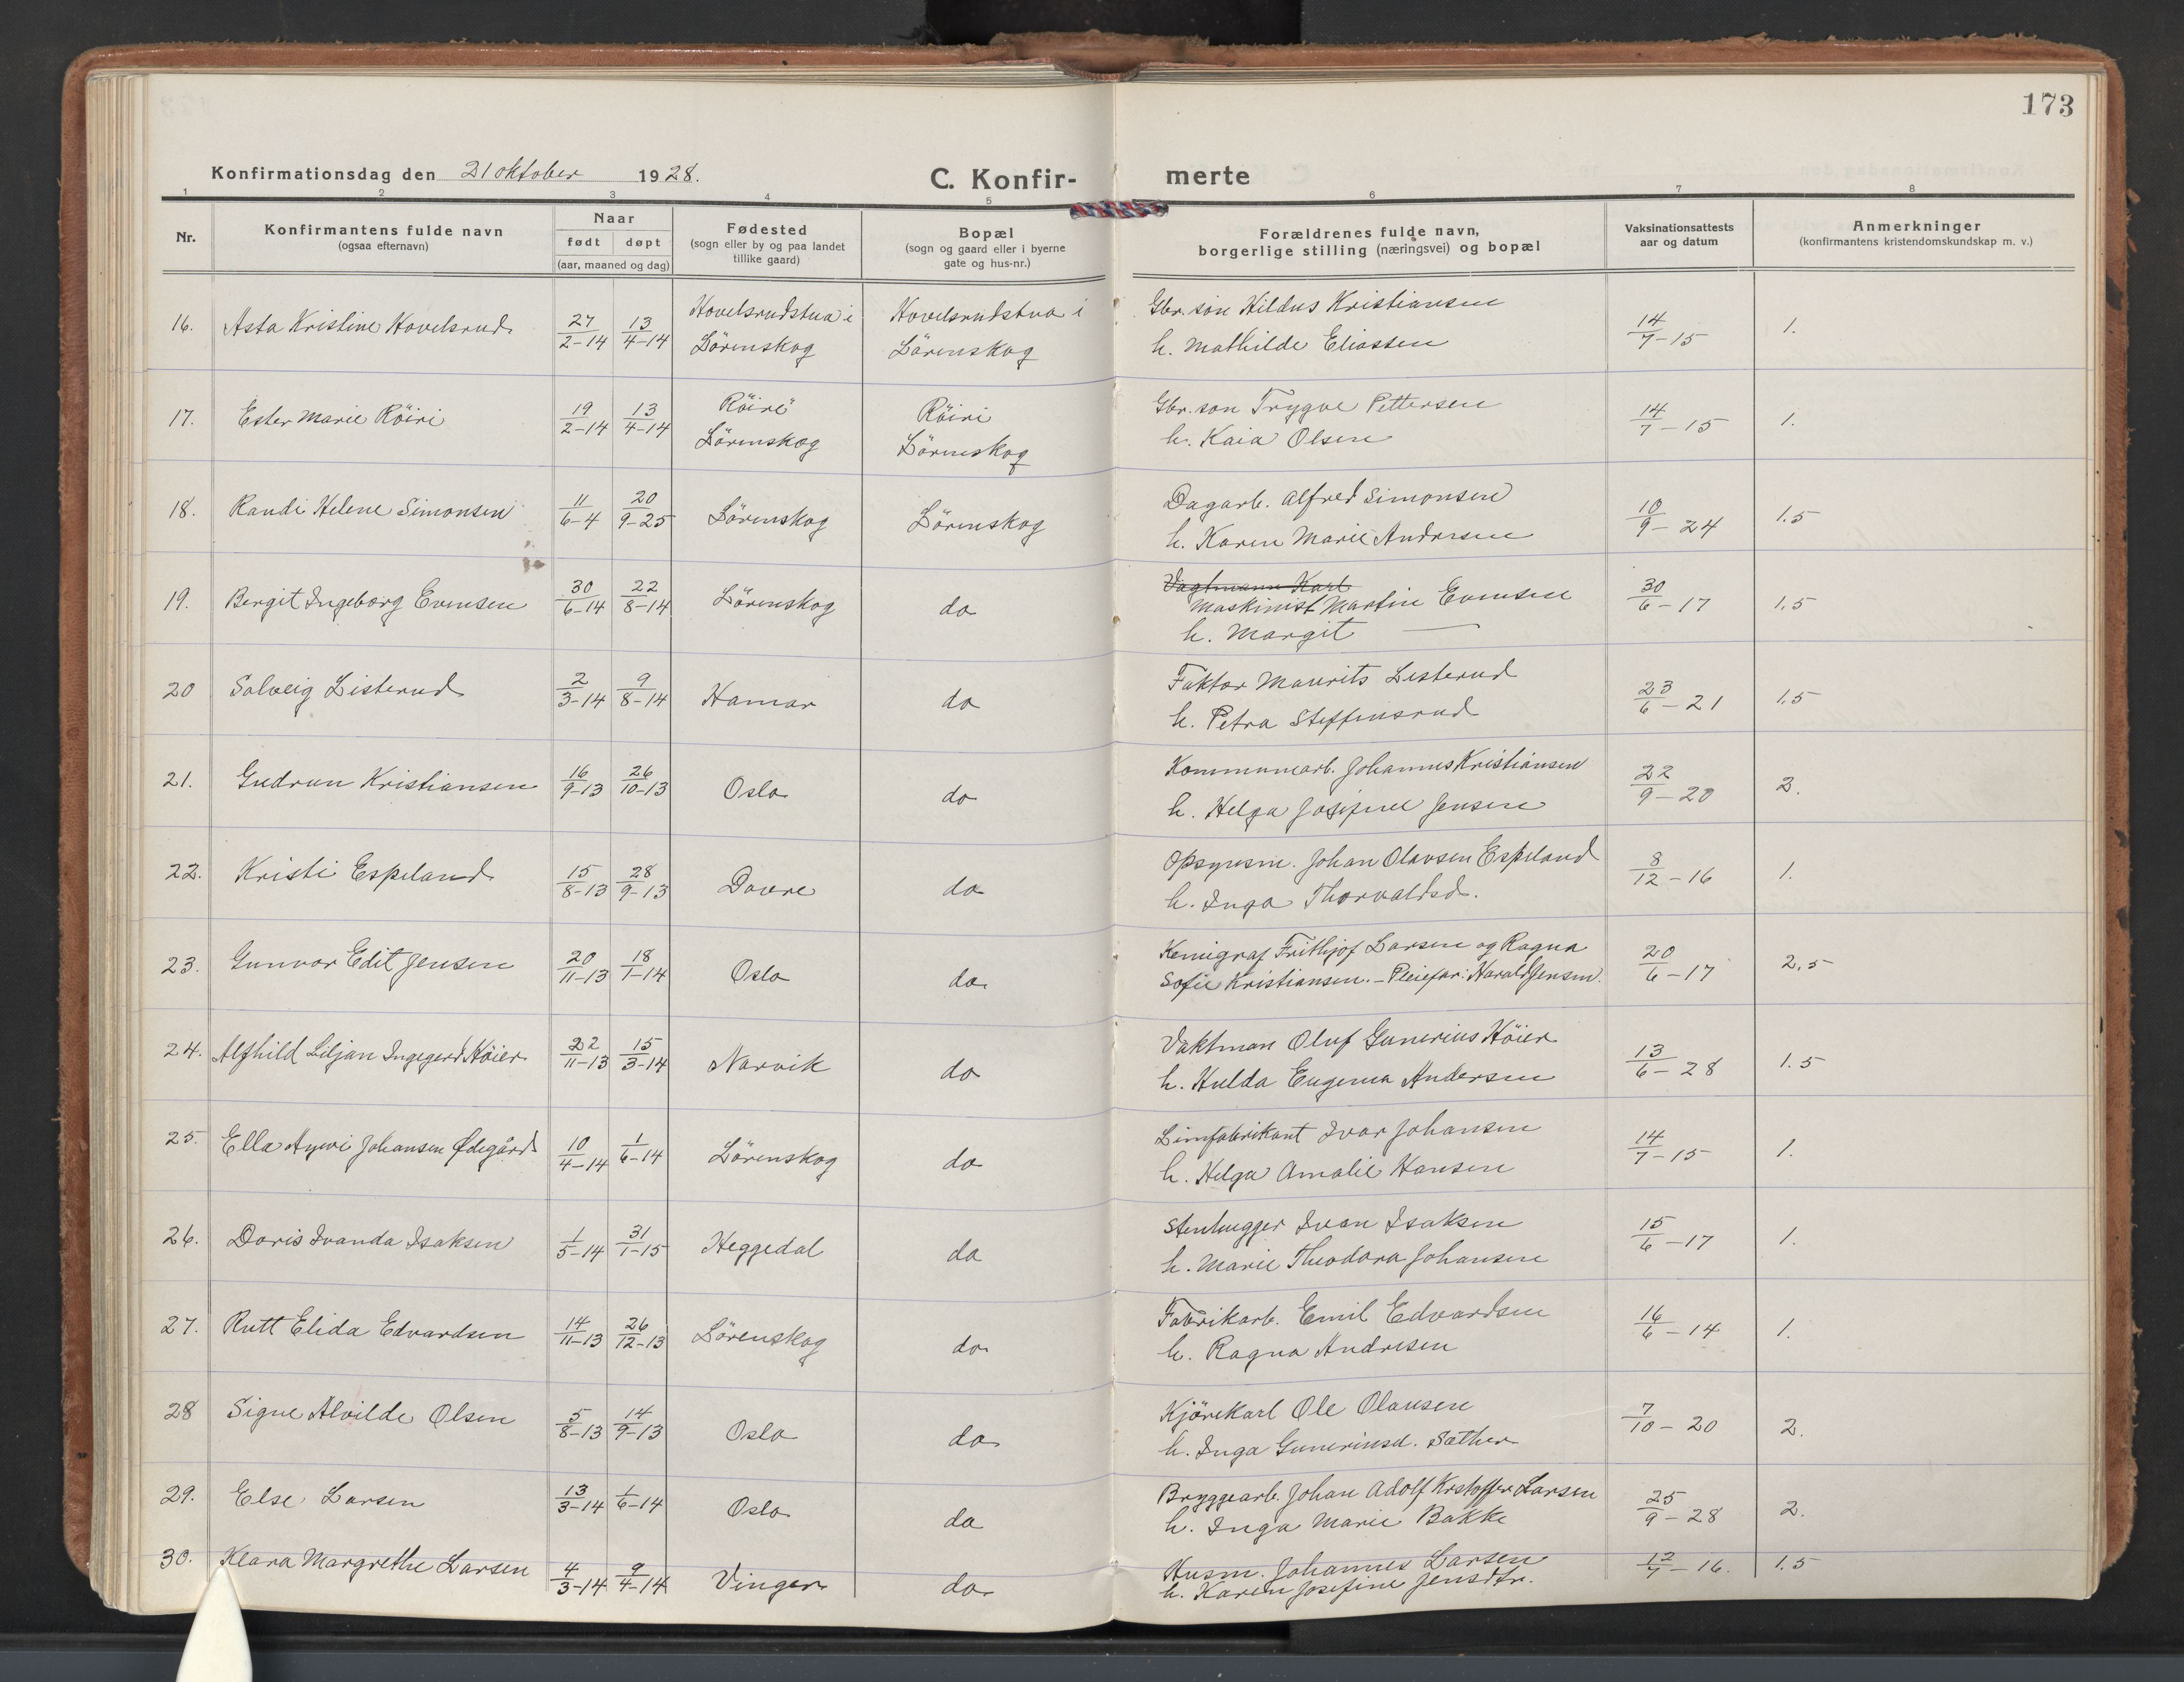 173
Konfirmationsdag den 21 oktober 1928.
C. Konfir-merte
1 2 3 4 5 6 7 8
Nr.
Konfirmantens fulde navn
(ogsaa efternavn)
Naar
født døpt
(aar, maaned og dag)
Fødested
(sogn eller by og paa landet
tillike gaard)
Bopæl
(sogn og gaard eller i byerne
gate og hus-nr.)
Forældrenes fulde navn,
borgerlige stilling (næringsvei) og bopæl
Vaksinationsattests
aar og datum
Anmerkninger
(konfirmantens kristendomskundskap m. v.)
16. Asta Kristine Hovelsrud 27/2-14 13/4-14 Hovelsrudstua i Hovelsrudstua i Gbr. søn Hildus Kristiansen 14/7-15 1.
Lörenskog Lörenskog h. Mathilde Eliassen
17. Ester Marie Röiri 19/2-14 13/4-14 Röiri Röiri Gbr. søn Trygve Pettersen 14/7-15 1.
Lörenskog Lörenskog h. Kaia Olsen
18. Randi Helene Simonsen 11/6-4 20/9-25 Lörenskog Lörenskog Dagarb. Alfred Simonsen 10/9-24 1.5
h. Karen Marie Andresen
19. Bergit Ingeborg Evensen 30/6-14 22/8-14 Lörenskog do Vagtmann Karl 30/6-17 1,5
Maskinist Martin Evensen
h. Margit —
20 Solveig Listerud 2/3-14 9/8-14 Hamar do Faktor Maurits Listerud 23/6-21 1,5
h. Petra Steffensrud
21. Gudrun Kristiansen 16/9-13 26/10-13 Oslo do Kommunearb. Johannes Kristiansen 22/9-20 2.
h. Helga Josefine Jensen
22. Kristi Espeland 15/8-13 28/9-13 Dovre do Opsynsm. Johan Olavsen Espeland 8/12-16 1.
h. Inga Thorvaldsd.
23. Gunvor Edit Jensen 20/11-13 18/1-14 Oslo do Kemigraf Frithjof Larsen og Ragna 20/6-17 2,5
Sofie Kristiansen. - Pleiefar: Harald Jensen.
24. Alfhild Liljan Ingegerd Höier 22/11-13 15/3-14 Narvik do Vaktman Oluf Gunerius Höier 13/6-28 1.5
h. Hulda Eugenia Andersen
25. Ella Aywi Johansen Ødegård 10/4-14 1/6-14 Lörenskog do Limfabrikant Ivar Johansen 14/7-15 1.
h. Helga Amalie Hansen
26. Doris Ivanda Isaksen 1/5-14 31/1-15 Heggedal do Stenhugger Ivan Isaksen 15/6-17 1.
h. Marie Theodora Johansen
27. Rutt Elida Edvardsen 14/11-13 26/12-13 Lörenskog do Fabrikarb. Emil Edvardsen 16/6-14 1.
h. Ragna Andresen
28 Signe Alvilde Olsen 5/8-13 14/9-13 Oslo do Kjörekarl Ole Olausen 7/10-20 2.
h. Inga Gunerinsd. Sæther
29. Else Larsen 13/3-14 1/6-14 Oslo do Bryggearb. Johan Adolf Kristoffer Larsen 25/9-28 2.
h. Inga Marie Bakke
30. Klara Margrethe Larsen 4/3-14 9/4-14 Vinger do Husm. Johannes Larsen 12/7-16. 1.5
h. Karen Josefine Jensdtr.